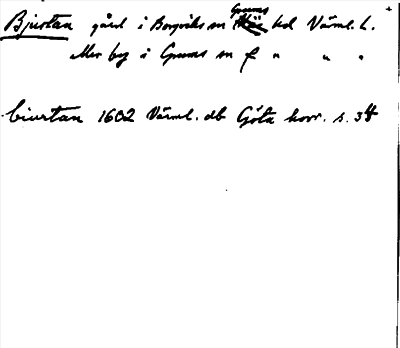 Bjurtan gård i Borgviks sn Grums hd Värml. L.
eller by i Grums sn f " " "
biurtan 1602 Värml. db Göta hovr. s. 34